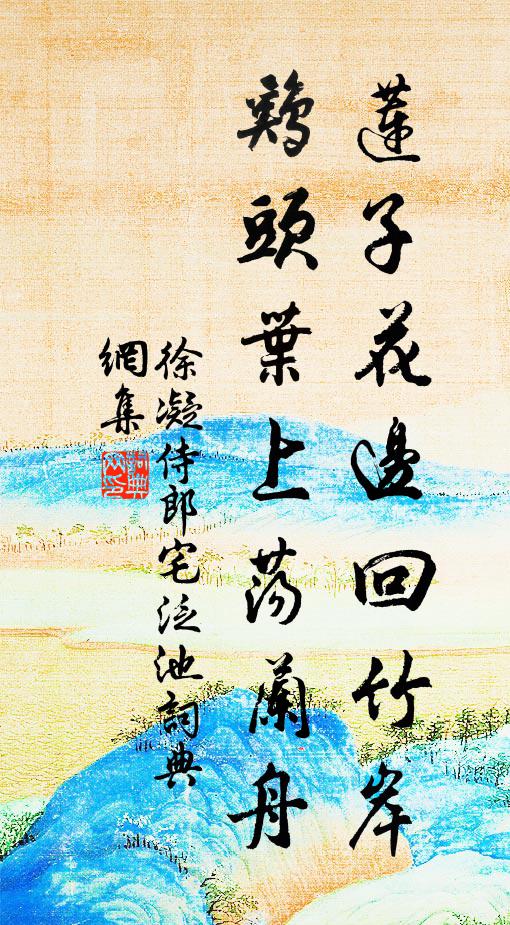 蓮子花邊回竹岸
鷄頭葉上蕩蘭舟
徐凝侍郎宅泛池詞典
網集